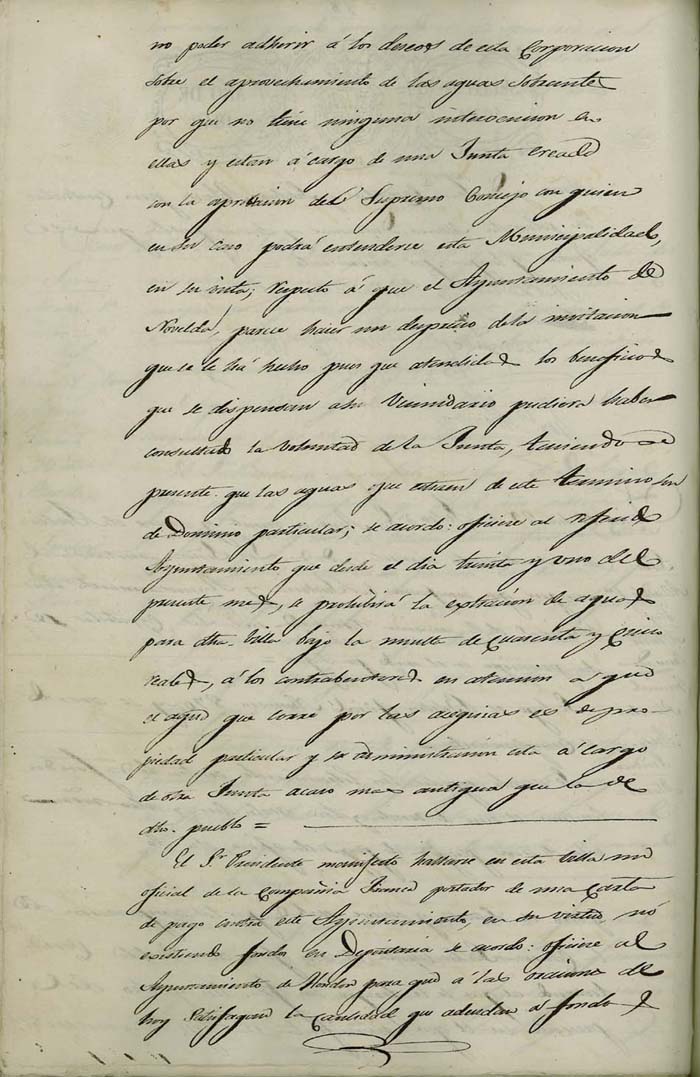 no poder adherir á los deseos de esta Corporacion
sobre el aprovechamiento de las aguas sobrantes
por que no tiene ninguna intervencion en
ellas y estan á cargo de una Junta creada
con la aprobacion del Supremo Consejo con quien
en su caso podrá entenderse esta Municipalidad,
en su vista; respecto á que el Ayuntamiento de
Novelda, parece hacer un desprecio de la invitacion
que se le há hecho pues que atendidos los beneficios
que se dispensan a su Vecindario pudiera haber
consultado la voluntad de la Junta, teniendo
presente que las aguas que salen de este termino son
de Dominio particular; se acordo: oficiese al referido
Ayuntamiento que desde el dia treinta y uno del
presente mes, se prohibirá la extracion de aguas
para dha. Villa bajo la multa de Cuarenta y Cinco
reales, á los contrabentores en atencion a que
el agua que corre por las asequias es de pro-
piedad particular y su administracion esta á cargo
de otra Junta acaso mas antigua que la de
dho. pueblo =
El Sr. Presidente manifesto hallarse en esta Villa un
oficial de la Compañia Franca portador de una Carta
de pago contra este Ayuntamiento, en su virtud no
existiendo fondos en Depositaria se acordo: oficiese al
Ayuntamiento de Hondon para que á las oraciones de
hoy Satisfagan la Cantidad que adeudan á fondos